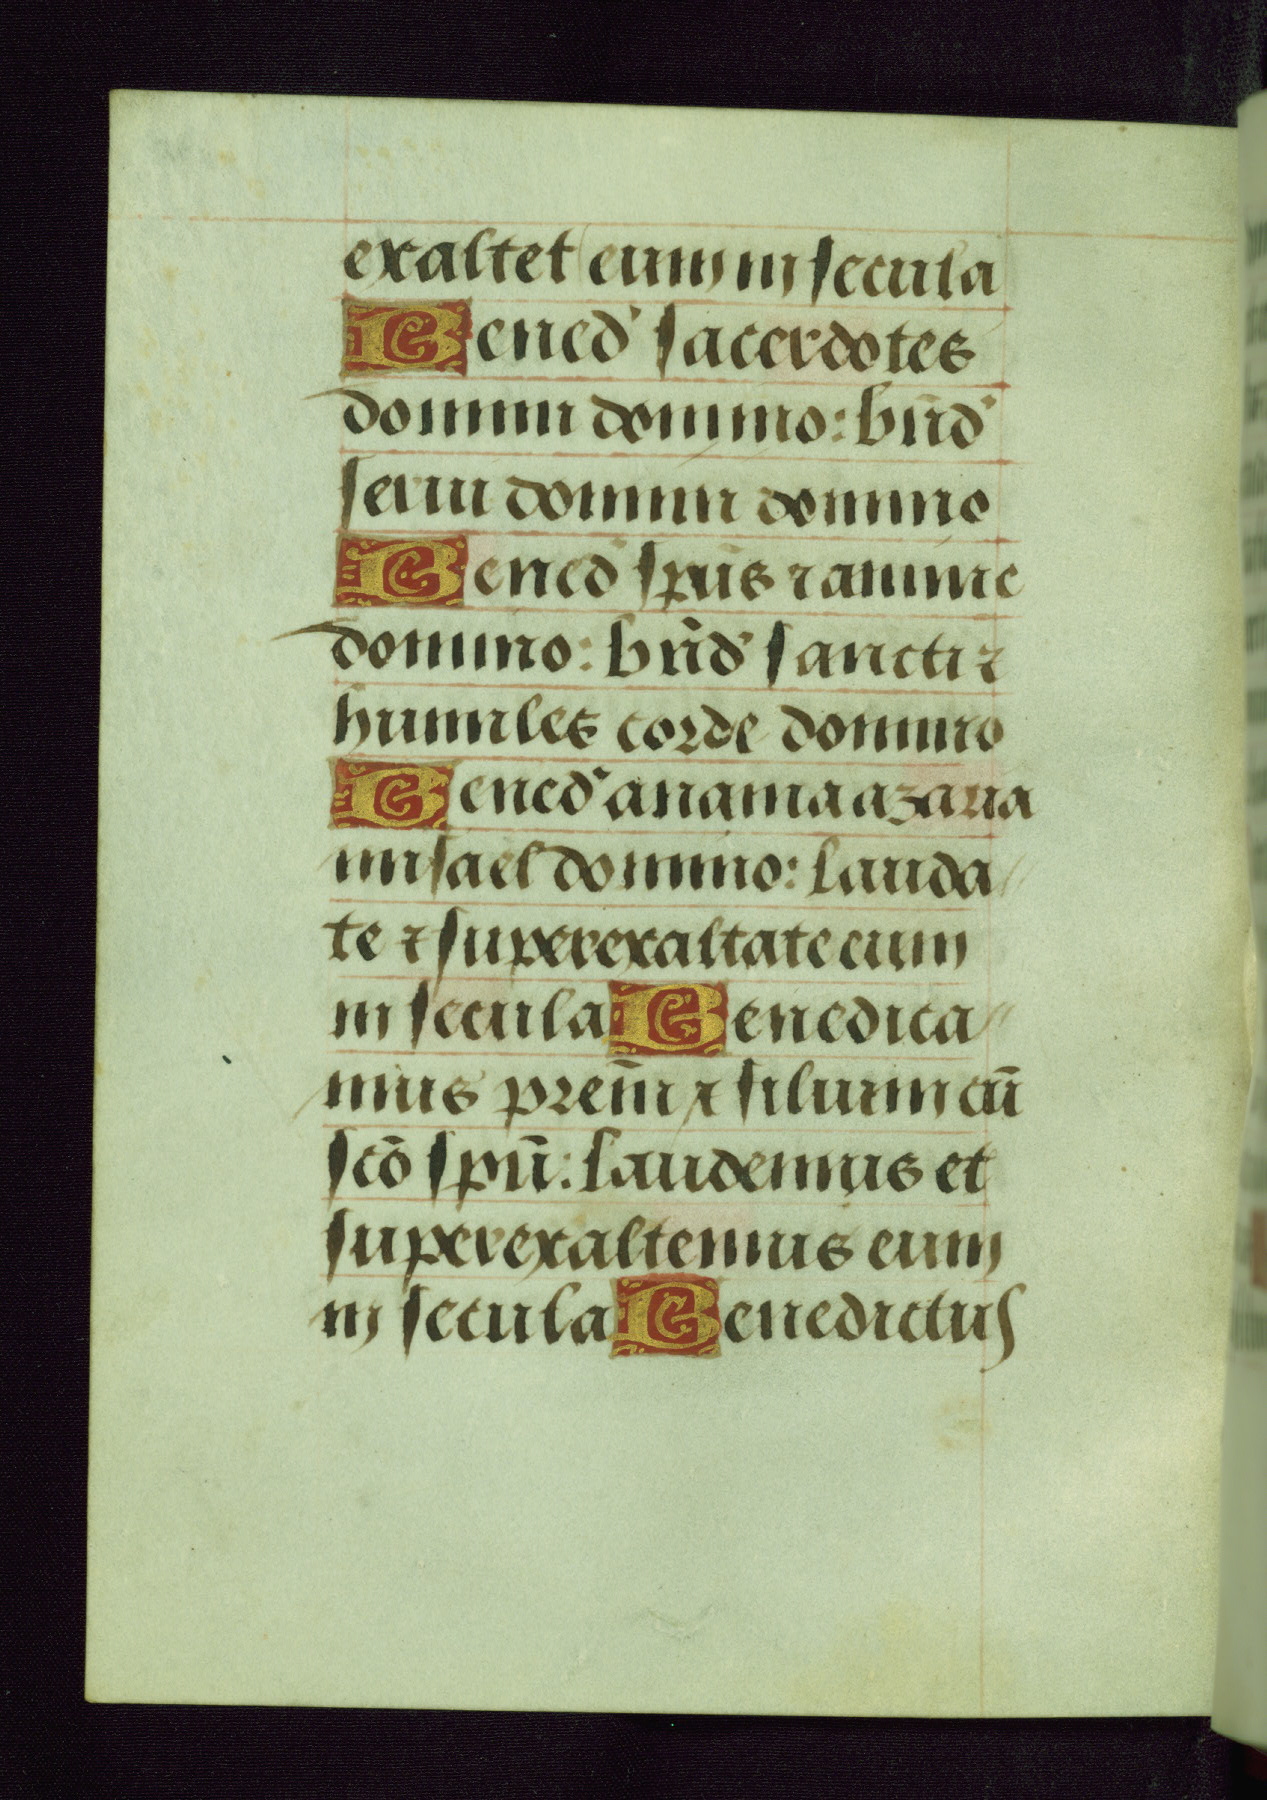 exaltet eum in secula
Bened' sacerdotes
domini domino: bn̄d'
serui domini domino
Bened' sp̄us ⁊ anime
domino: bn̄d' sancti ⁊
humiles corde domino
Bened' anania azaria
misael domino: lauda
te ⁊ superexaltate eum
in secula Benedica
mus prem̄ ⁊ filium cū
scō spū: laudemus et
superexaltemus eum
in secula Benedictus